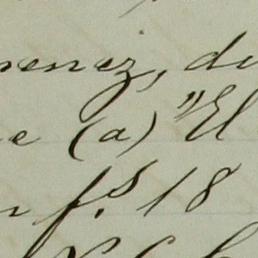 menez, di
e (a) "El
n f.s 18